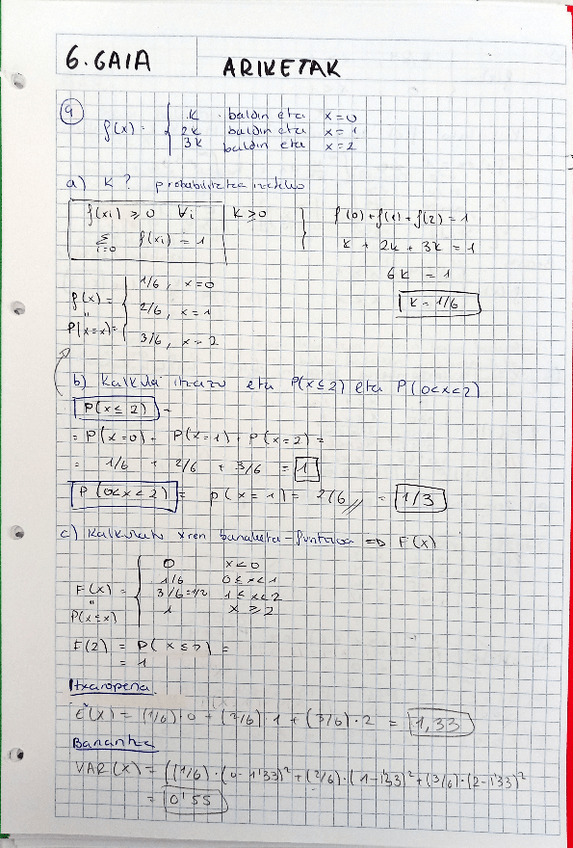 6. GAIA ARIKETAK
9
f(x) = { k baldin eta x=0
2k baldin eta x=1
3k baldin eta x=2
a) K? probabilitatea izateko
f(xi) ≥ 0 ∀i K ≥ 0 } f(0)+f(1)+f(2) = 1
Σ i=0 f(xi) = 1 K + 2K + 3K = 1
6K = 1
K = 1/6
f(x) = { 1/6, x=0
" 2/6, x=1
P(X=x)= 3/6, x=2
b) Kalkula itzazu eta P(x≤2) eta P(0<x<2)
P(x≤2) =
= P(x=0) + P(x=1) + P(x=2) =
= 1/6 + 2/6 + 3/6 = 1
P(0<x<2) = p(x=1) = 2/6 // = 1/3
c) Kalkulatu x-ren banaketa-funtzioa => F(x)
F(x) = { 0 x<0
1/6 0≤x<1
" 3/6=1/2 1≤x<2
P(x≤x) 1 x≥2
F(2) = P(x≤2) =
= 1
Itxaropena
E(x) = (1/6)·0 + (2/6)·1 + (3/6)·2 = 1,33
Bariantza
VAR(X) = ((1/6)·(0-1'33)² + (2/6)·(1-1'33)² + (3/6)·(2-1'33)²
= 0'55